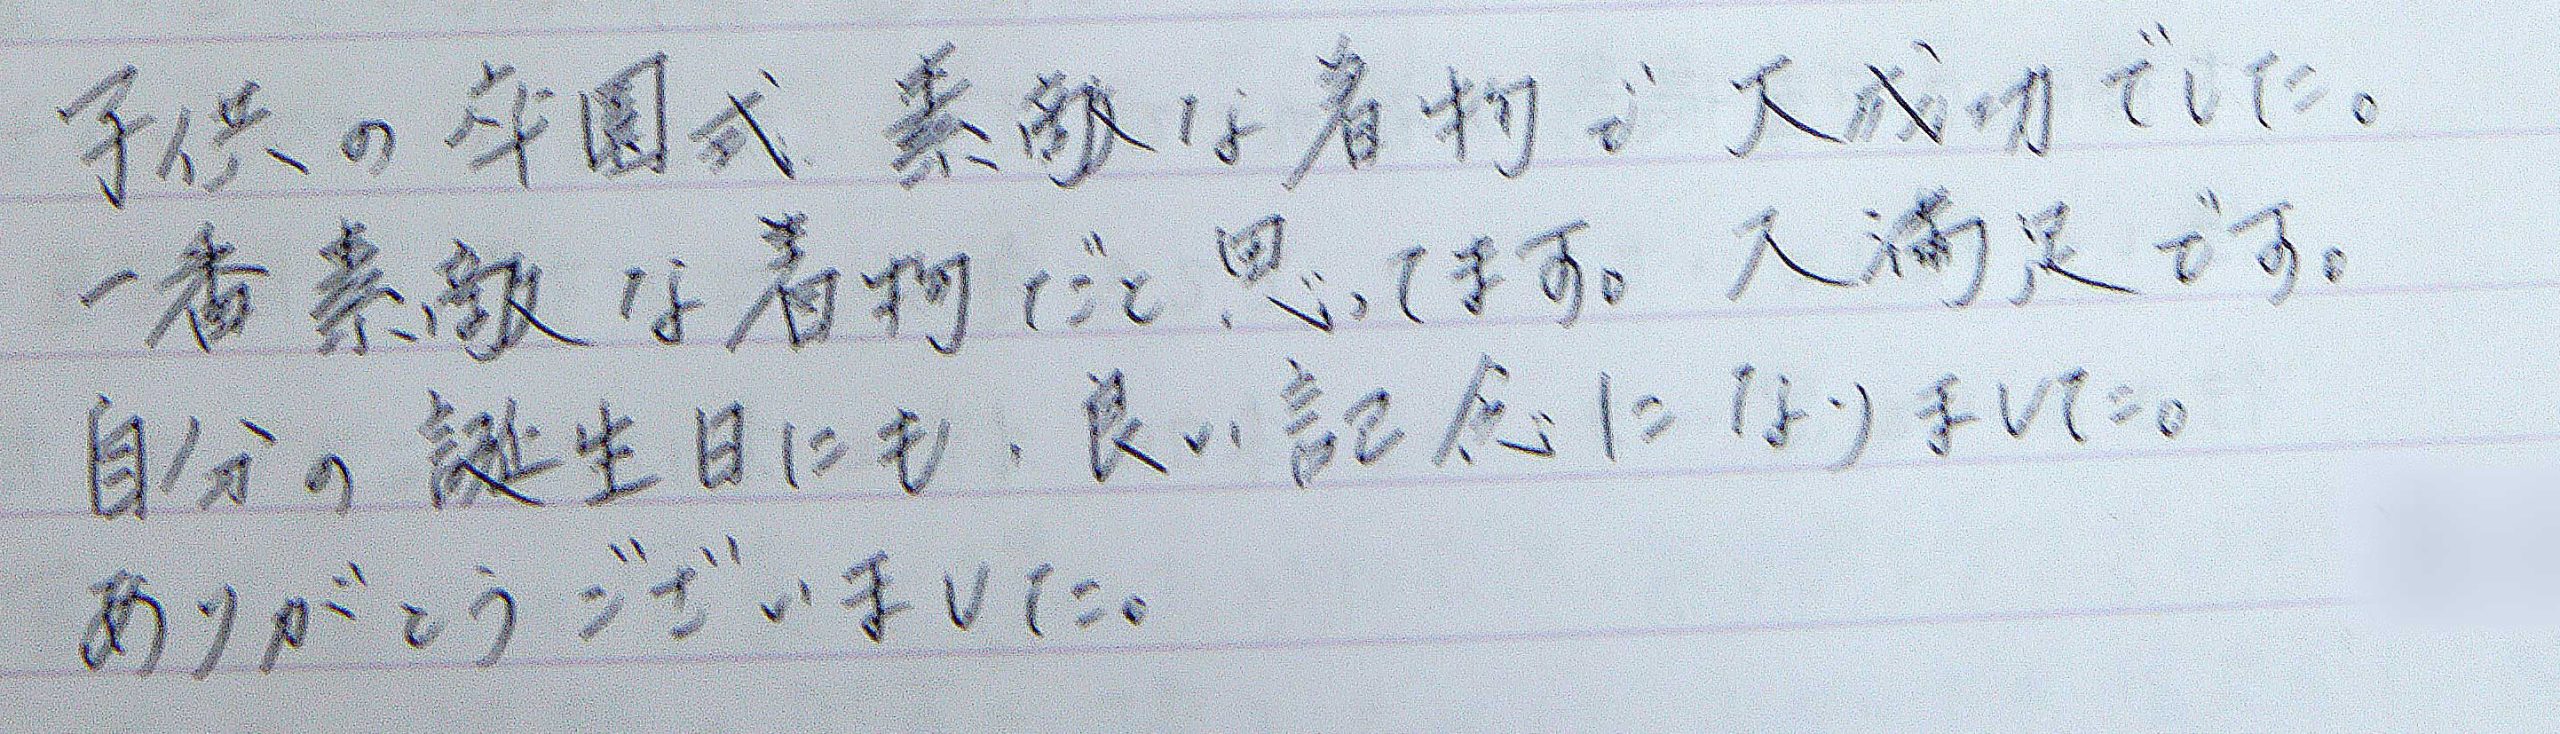 子供の卒園式 素敵な着物で大成功でした。
一番素敵な着物だと思ってます。大満足です。
自分の誕生日にも、良い記念になりました。
ありがとうございました。